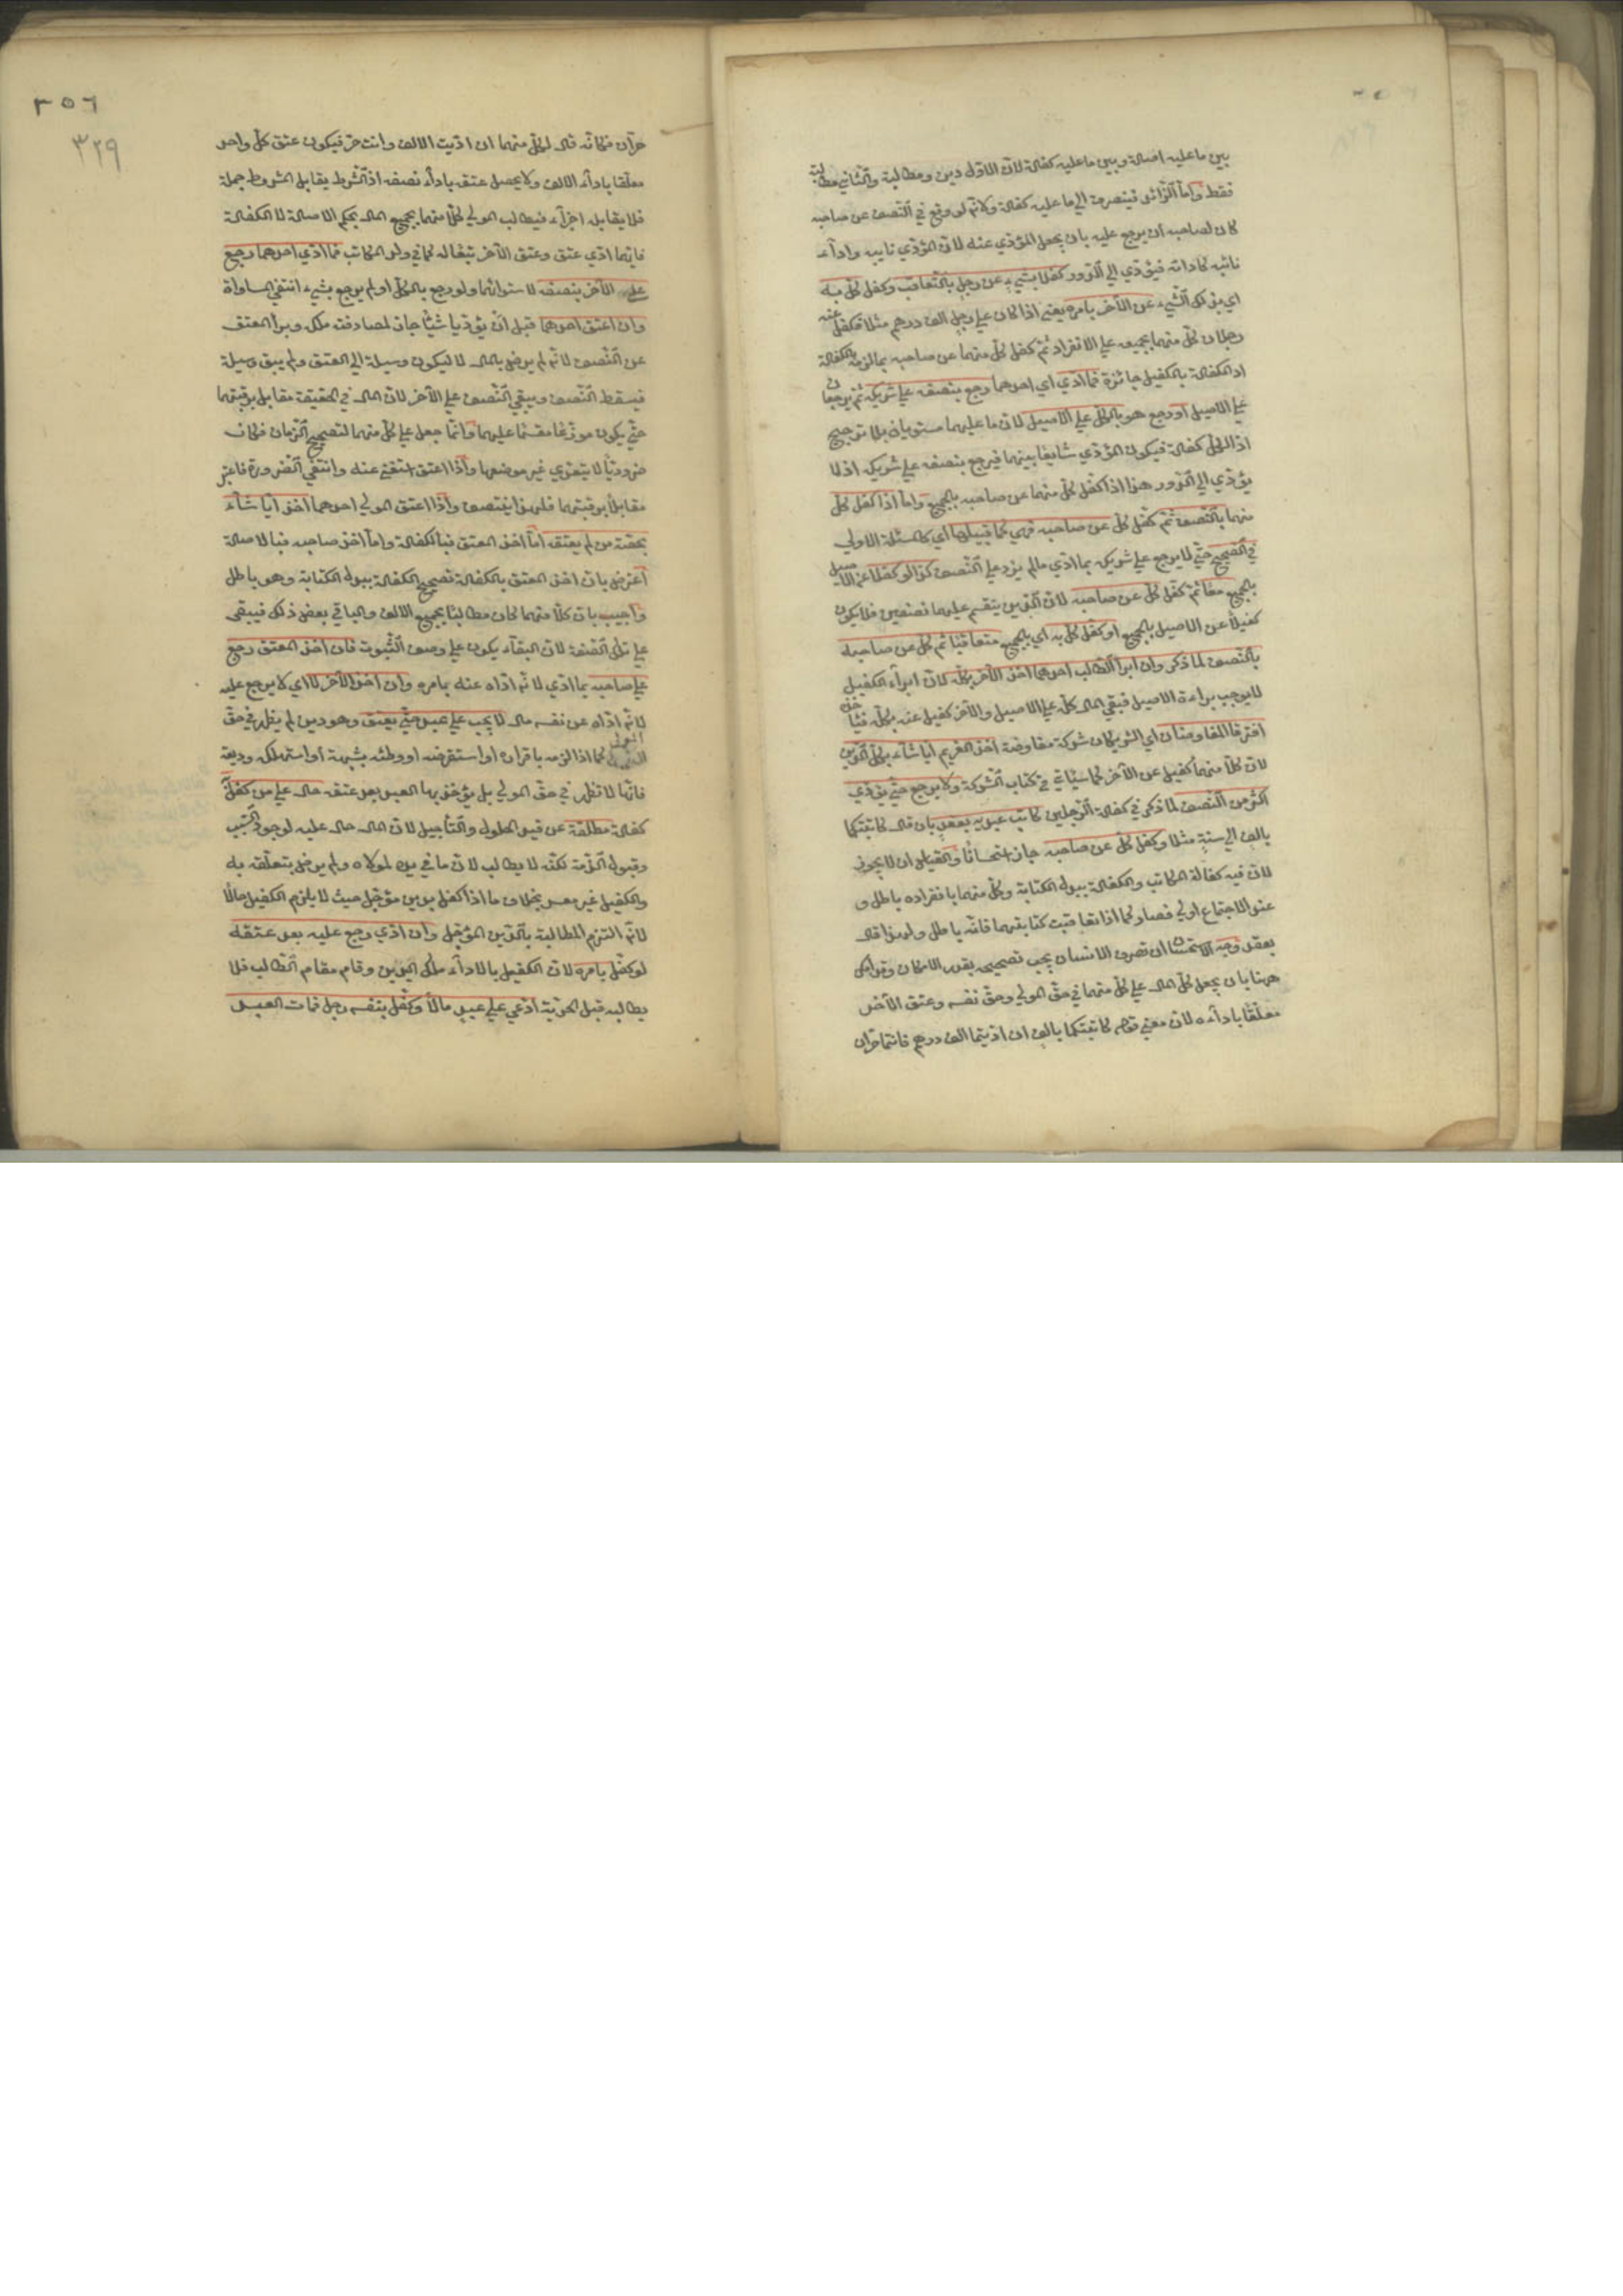 بين ما عليه اصالة وبين ما عليه كفالة لان الاول دين ومطالبة والثاني مطالبة
فقط واما الزائد فينصرف الي ما عليه كفالة ولانه لو وقع في النصف عن صاحبه
كان لصاحبه ان يرجع عليه بان يجعل المؤدي عنه لان المؤدي نايبه واداء
نائبه كادائه فيؤدي الي الدور كفلا بشيء عن رجل بالتعاقب وكفل كل به
اي بذلك الشيء عن الآخر بامره يعني اذا كان علي رجل الف درهم مثلا فكفل عنه
رجلان كل منهما بجميعه علي الانفراد ثم كفل كل منهما عن صاحبه بما لزمه بالكفالة
اذ الكفالة بالكفيل جائزة فما ادي اي احدهما رجع بنصفه علي شريكه ثم يرجعان
علي الاصيل او رجع هو بالكل علي الاصيل لان ما عليهما مستويان بلا ترجيح
اذ الكل كفالة فيكون المؤدي شايعا بينهما فيرجع بنصفه علي شريكه اذ لا
يؤدي الي الدور هذا اذا كفل كل منهما عن صاحبه بالجميع واما اذا كفل كل
منهما بالنصف ثم كفل كل عن صاحبه فهي كما قبلها اي كالمسئلة الاولي
في الصحيح حتي لا يرجع علي شريكه بما ادي مالم يزد علي النصف كذا لو كفلا عن الاصيل
بالجميع معا ثم كفل كل عن صاحبه لان الدين ينقسم عليهما نصفين فلا يكون
كفيلا عن الاصيل بالجميع او كفل كل به اي بالجميع متعاقبا ثم كل عن صاحبه
بالنصف لما ذكر وان ابرأ الطالب احدهما اخذ الآخر بكله لان ابراء الكفيل
لا يوجب براءة الاصيل فبقي المال كله علي الاصيل والآخر كفيل عنه بكله فيأخذه
افترقا المفاوضان اي الشريكان شركة مفاوضة اخذ الغريم ايا شاء بكل الدين
لان كلا منهما كفيل عن الآخر كما سيأتي في كتاب الشركة ولا يرجع حتي يؤدي
اكثر من النصف لما ذكر في كفالة الرجلين كاتب عبديه بعقد بان قال كاتبتكما
بالف الي سنة مثلا وكفل كل عن صاحبه جاز استحسانا والقياس ان لا يجوز
لان فيه كفالة المكاتب والكفالة ببدل الكتابة وكل منهما بانفراده باطل و
عند الاجتماع اولي فصار كما اذا تعاقبت كتابتهما فانه باطل ولهذا قال
بعقد وجه الاستحسان ان تصرف الانسان يجب تصحيحه بقدر الامكان وقد امكن
ههنا بان يجعل كل المال علي كل منهما في حق المولي وحق نفسه وعتق الآخر
معلقا بادائه لان معني قوله كاتبتكما بالف ان اديتما الف درهم فانتما حران
٣٥٦
٣٢٩
حران فكانه قال لكل منهما ان اديت الالف وانت حر فيكون عتق كل واحد
معلقا باداء الالف ولا يحصل عتقه باداء نصفه اذ الشرط يقابل المشروط جملة
فلا يقابله اجزاء فيطالب المولي لكل منهما بجميع المال بحكم الاصالة لا الكفالة
فايهما ادي عتق وعتق الآخر تبعا له كما في ولد المكاتب فما ادي احدهما رجع
علي الآخر بنصفه لاستوائهما ولو رجع بالكل او لم يرجع بشيء انتفي المساواة
وان اعتق احدهما قبل ان يؤديا شيئا جاز لمصادفته ملكه وبرأ المعتق
عن النصف لانه لم يرض بالمال الا ليكون وسيلة الي العتق ولم يبق وسيلة
فيسقط النصف ويبقي النصف علي الآخر لان المال في الحقيقة مقابل برقبتهما
حتي يكون موزعا منقسما عليهما وانما جعل علي كل منهما لتصحيح الزمان فكان
ضروريا لا يتعدي غير موضعها واذا اعتق استغني عنه وانتفي الضرورة فاعتبر
مقابلا برقبتهما فلهذا ينتصف واذا اعتق المولي احدهما اخذ ايا شاء
بحصة من لم يعتقه اما اخذ المعتق فبالكفالة واما اخذ صاحبه فبالاصالة
اعترض بان اخذ المعتق بالكفالة تصحيح الكفالة ببدل الكتابة وهو باطل
واجيب بان كلا منهما كان مطالبا بجميع الالف والباقي بعض ذلك فيبقي
علي تلك الصفة لان البقاء يكون علي وصف الثبوت فان اخذ المعتق رجع
علي صاحبه بما ادي لانه اداه عنه بامره وان اخذ الآخر لا اي لا يرجع عليه
لانه اداه عن نفسه مال لا يجب علي عبد حتي يعتق وهو دين لم يظهر في حق
المولي كما اذا لزمه باقراره او استقرضه او وطئه بشبهة او استهلك وديعة
فانها لا تظهر في حق المولي بل يؤخذ بها العبد بعد عتقه حال علي من كفل
كفالة مطلقة عن قيد الحلول والتأجيل لان المال حال عليه لوجود السبب
وقبول الذمة لكنه لا يطالب لان ما في يده لمولاه ولم يرض بتعلقه به
والكفيل غير معسر بخلاف ما اذا كفل بدين مؤجل حيث لا يلزم الكفيل حالا
لانه التزم المطالبة بالدين المؤجل وان ادي رجع عليه بعد عتقه
لو كفل بامره لان الكفيل بالاداء ملك الدين وقام مقام الطالب فلا
يطالبه قبل الحرية ادعي علي عبد مالا وكفل بنفسه رجل فمات العبد